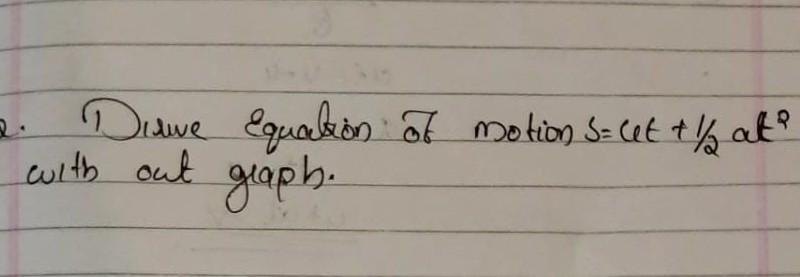 2. Dirive Equation of motion S=ut + 1/2 at²
with out graph.